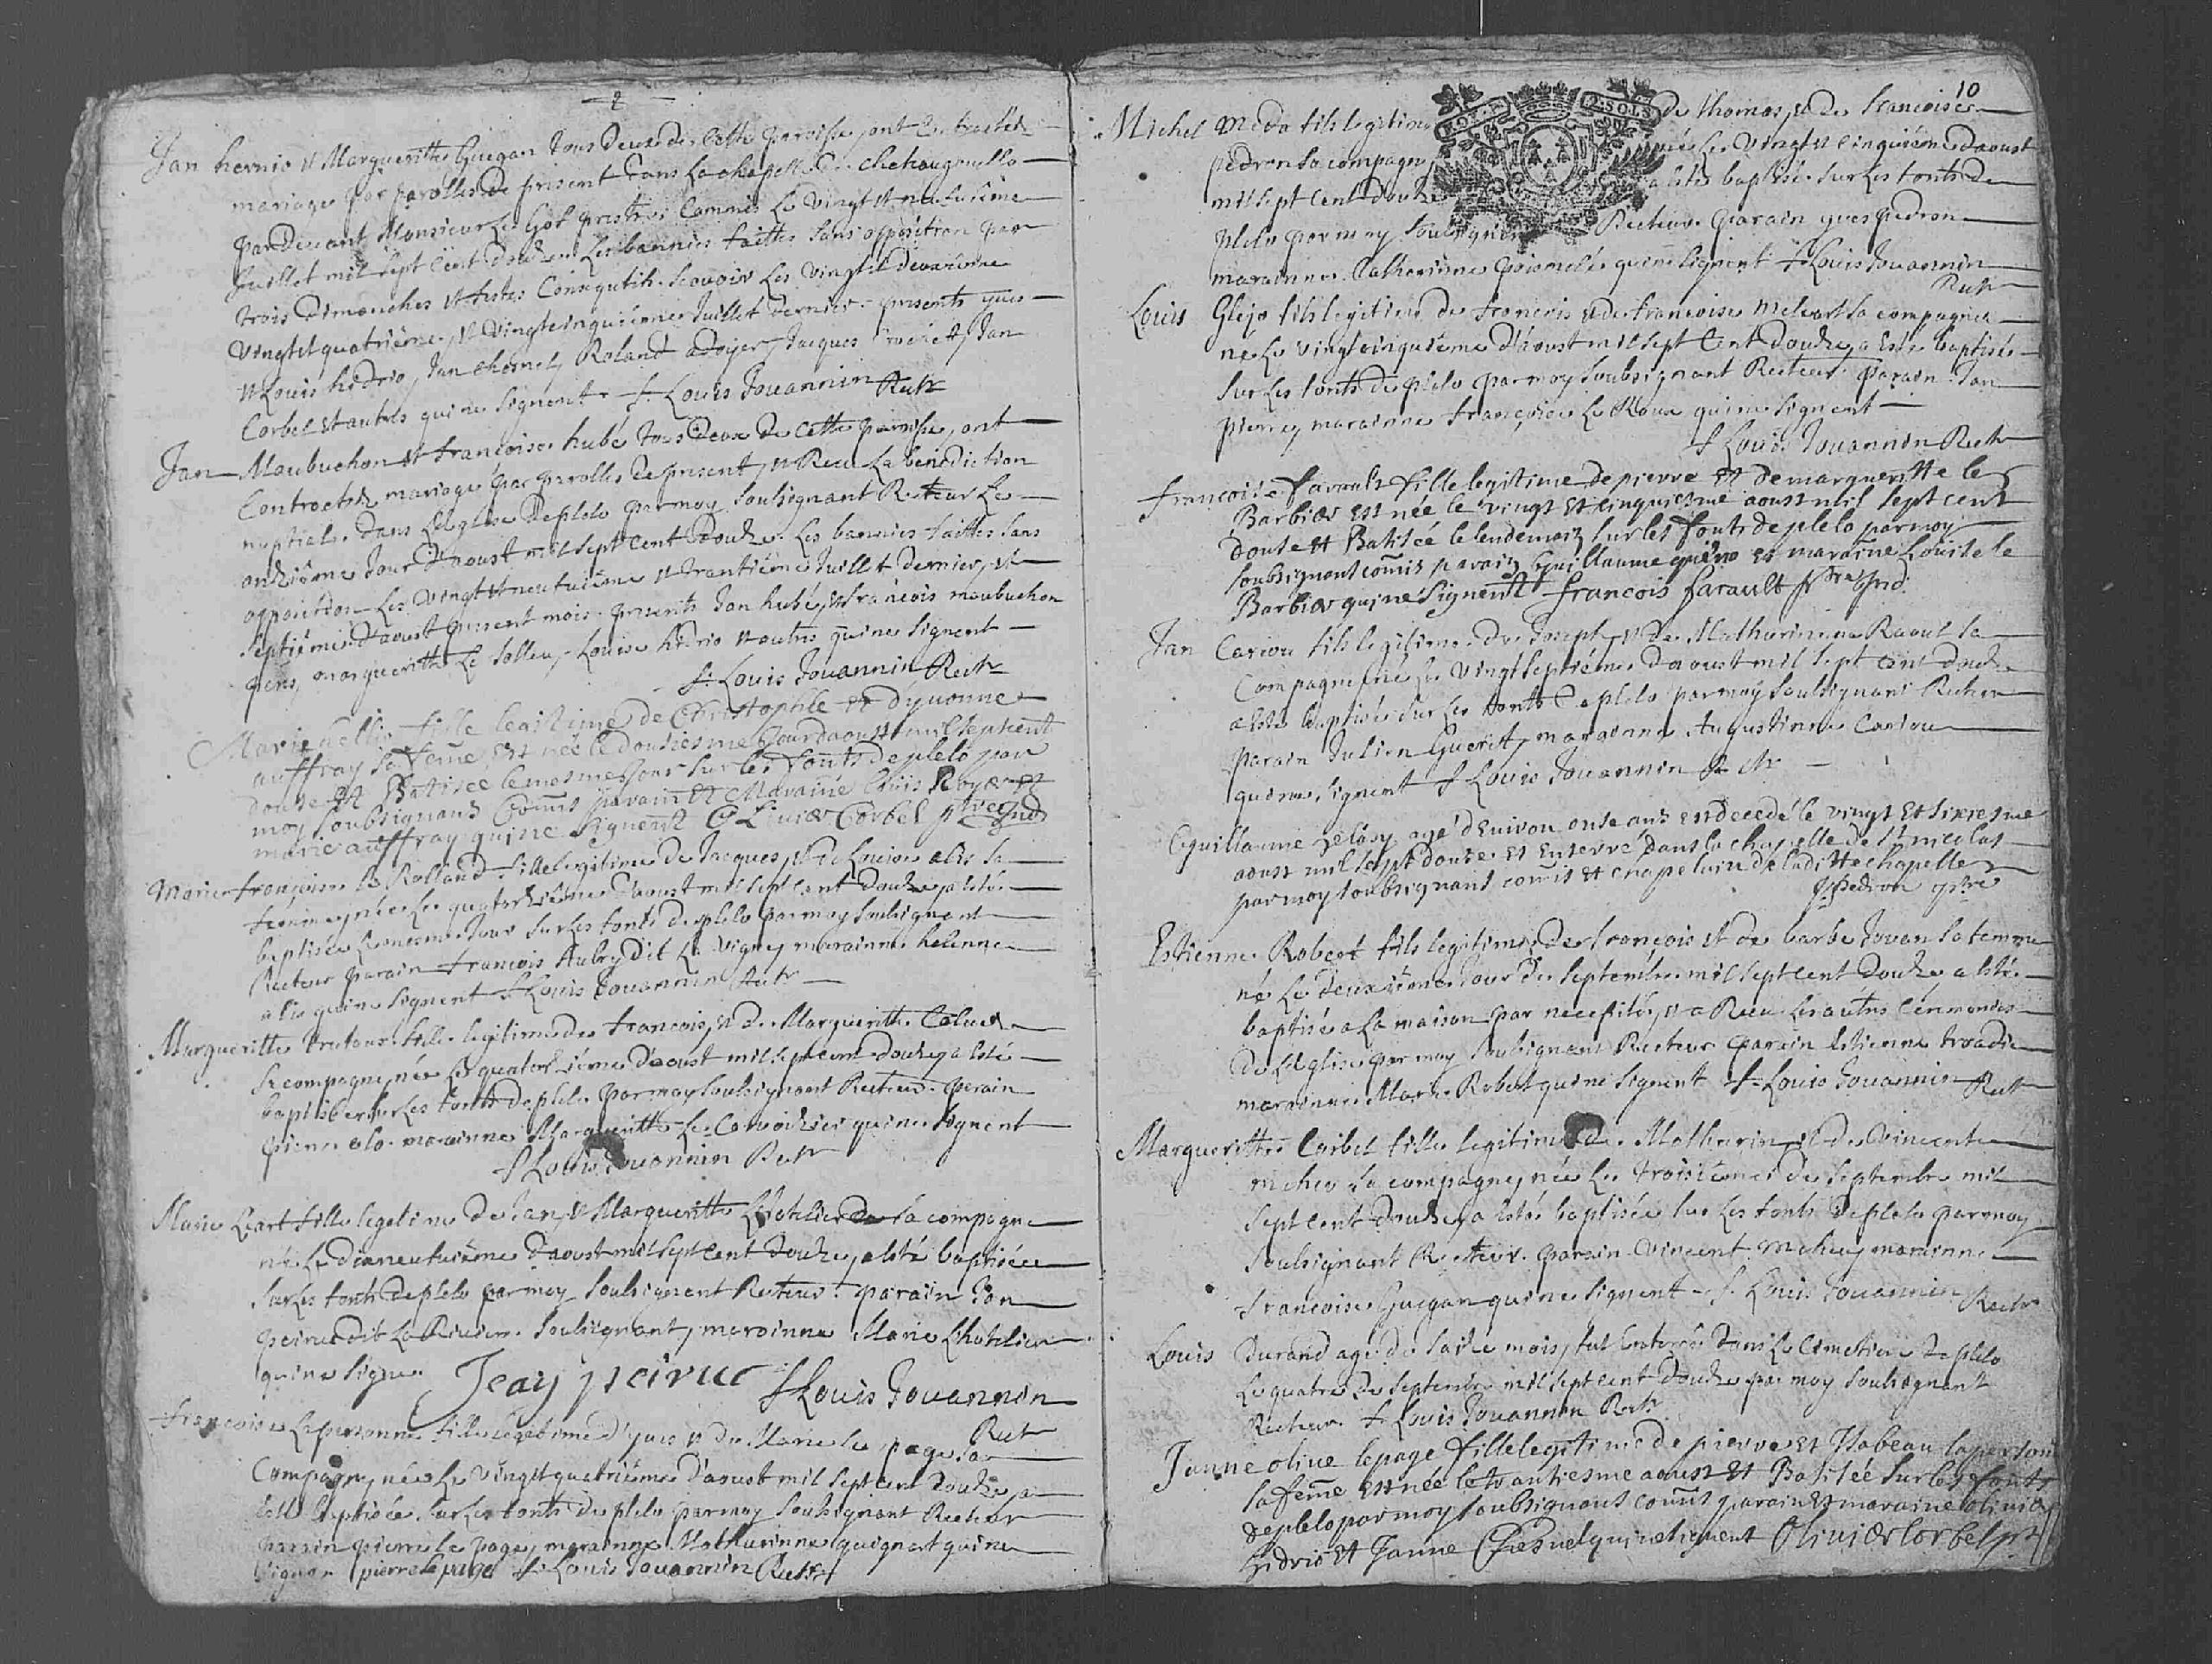 Jan hernio et Margueritte Guegan tous deux de cette paroisse, ont contractéz
mariage par parolles de present dans la chapelle de
par devant Monsieur Le Got prestre commis le vingt et neufuiéme
Juillet mil sept cent douze Les bannies faittes sans opposition par
trois dimanches et festes consequtifs scavoir les vingt et deuxiéme
vingt et quatriéme, et vingt cinquiéme Juillet dernier. presents yues
et Louis hidrio, Jan chemel, Roland Jacques Jan
Corbel et autres qui ne signent. f. Louis Jouannin Rectr
Jan Maubuchon et francoise hubé tous deux de cette paroisse, ont
contractéz mariage par parolles de present, et Receu la benediction
nuptiale dans Leglise de plelo par moy soubsignant Recteur Le
onziéme jour d'aoust mil sept cent douze Les bannies faittes sans
opposition Les vingt et neufuiéme et trantiéme Juillet dernier, et
septiéme d'aoust present mois. presents Jan hubé, et francois maubuchon
pere, marguerittte Le Solleu, Louise hidrio et autres qui ne signent
f. Louis Jouannin Rectr
Marie fille legitime de Christophle et d'yuonne
auffray sa feme, est née le dousiesme jour daoust mil sept cent
douse et Batisee le mesme jour sur les fonts de plelo par
moy soubsignand Comis parain et Maraine Louis Royer et
marie auffray qui ne signent Oliuier Corbel ptre
Marie francoise Le Rolland fille legitime de Jacques, et de Louise alis sa
femme, née Le quatorziéme d'aoust mil sept cent douze, a esté
baptisée Le mesme jour sur Les fonts de plelo par moy soubsignant
Recteur parain francois Aubry dit La vigne, marainne helenne
alis qui ne signent f Louis Jouannin Rectr
Marguerittte fille legitime de francois, et de Margueritte
sa compagne, née Le quatorziéme d'aoust mil sept cent douze, a esté
baptisée sur Les fonts de plelo par moy soubsignant Recteur. parain
pierre marainne Margueritte Le qui ne signent
f Louis Jouannin Rectr
Marie Liart fille legitime de Jan, et Margueritte L'hotelier sa compagne
née Le dixneufuiéme d'aoust mil sept cent douze, a esté baptisée
sur Les fonts de plelo par moy soubsignant Recteur. parain Jan
peiruc dit La Riuiere soubsignant, marainne Marie L'hotelier
qui ne signe Jean peiruc f Louis Jouannin
Rectr
francoise Lapersonne fille legitime d'yues et de Marie Le page sa
compagne, née Le vingt quatriéme d'aoust mil sept cent douze, a
esté baptisée sur Les fonts de plelo par moy soubsignant Recteur
parain pierre Le page, marainne Mathurinne quignart qui ne
signe pierre Le page f. Louis Jouannin Rectr
10
2 SOLS
Michel Meda fils legitime de thomas, et de francoise
pedron sa compagne, né Le vingt et cinquiéme daoust
mil sept cent douze a esté baptisé sur Les fonts de
plelo par moy soubsignant Recteur. parain yues pedron
marainne Catherinne qui ne signent f Louis Jouannin
Rectr
Louis Glejo fils legitime de francois et de francoise sa compagne
né Le vingt cinquiéme d'aoust mil sept cent douze, a esté baptisé
sur Les fonts de plelo par moy soubsignant Recteur. parain Jan
pierre, marainne francoise Le Roux qui ne signent
f Louis Jouannin Rectr
francoise farault fille legitime de pierre et de marguerittte le
Barbier est née le vingt et cinquiesme aoust mil sept cent
douse et Batisée le lendemain sur les fonts de plelo par moy
soubsignant comis parain Guillaume et maraine Louise le
Barbier qui ne signent francois farault ptre
Jan Cariou fils legitime de Joseph, et de Mathurinne Raoul sa
compagne né Le vingt septiéme daoust mil sept cent douze
a esté baptisé sur Les fonts de plelo par moy soubsignant Recteur
parain Julien Guerit, marainne Augustinne Cariou
qui ne signent f Louis Jouannin Rectr
Guillaume agé d'enuiron onse ans est decedé le vingt et sixiesme
aoust mil sept douse et enterré dans la chapelle de St nicolas
par moy soubsignant comis et chapelain de laditte chapelle
pedron ptre
Estienne Robert fils legitime de francois et de barbe Jouan sa femme
né Le deuxiéme jour de septembre mil sept cent douze a esté
baptisé a La maison par necessité, et a Receu Les autres ceremonies
de L'eglise par moy soubsignant Recteur parain Estienne
marainne Marie Robert qui ne signent f Louis Jouannin Rectr
Margueritte Corbel fille legitime de Mathurin, et de vincente
meheu sa compagne, née Le troisiéme de septembre mil
sept cent douze, a esté baptisée sur Les fonts de plelo par moy
soubsignant Recteur. parain vincent meheu, marainne
francoise Guegan qui ne signent f. Louis Jouannin Rectr
Louis Durand agé de saize mois, fut enterré dans Le cimetiere de plelo
Le quatre de septembre mil sept cent douze par moy soubsignant
Recteur. f Louis Jouannin Rectr
Janne oliue lepage fille legitime de pierre et Isabeau laperson
sa feme est née le trantiesme aoust et Batisée sur les fonts
de plelo par moy soubsignant comis parain et maraine oliuier
hidrio et Janne Chesnel qui ne signent Oliuier Corbel ptr